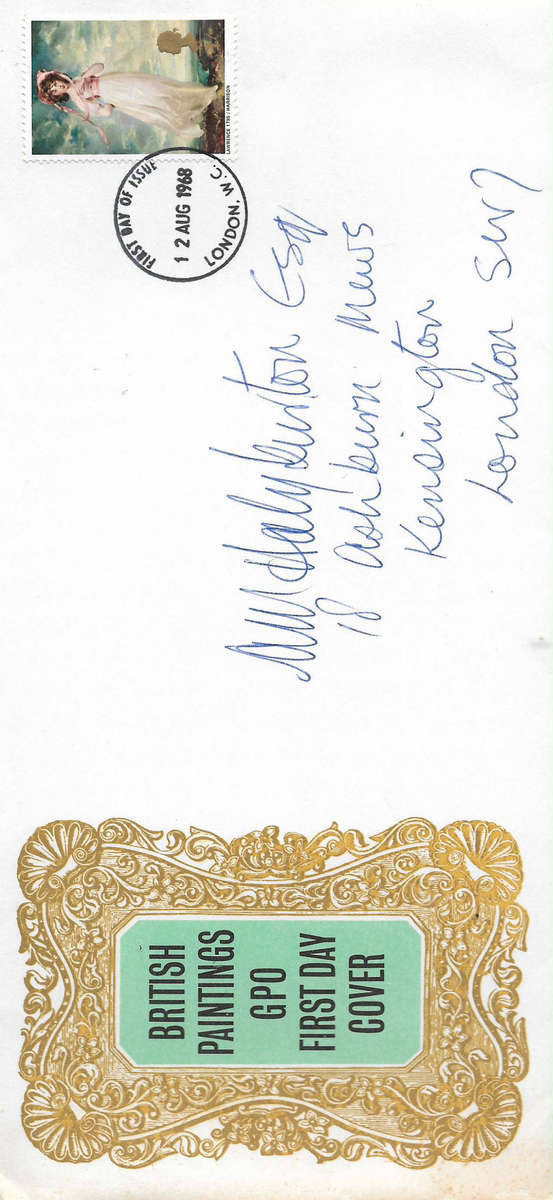 LAWRENCE 1795/HARRISON
FIRST DAY OF ISSUE
12 AUG 1968
LONDON. W.C.
Halyburton Esq
18 Ashburn Mews
Kensington
London SW7
BRITISH
PAINTINGS
GPO
FIRST DAY
COVER